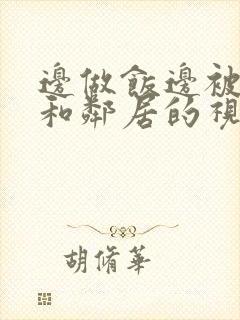 邊做飯邊被
和鄰居的視
胡脩華